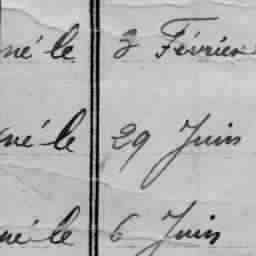 né le 3 Février
né le 29 Juin
né le 6 Juin